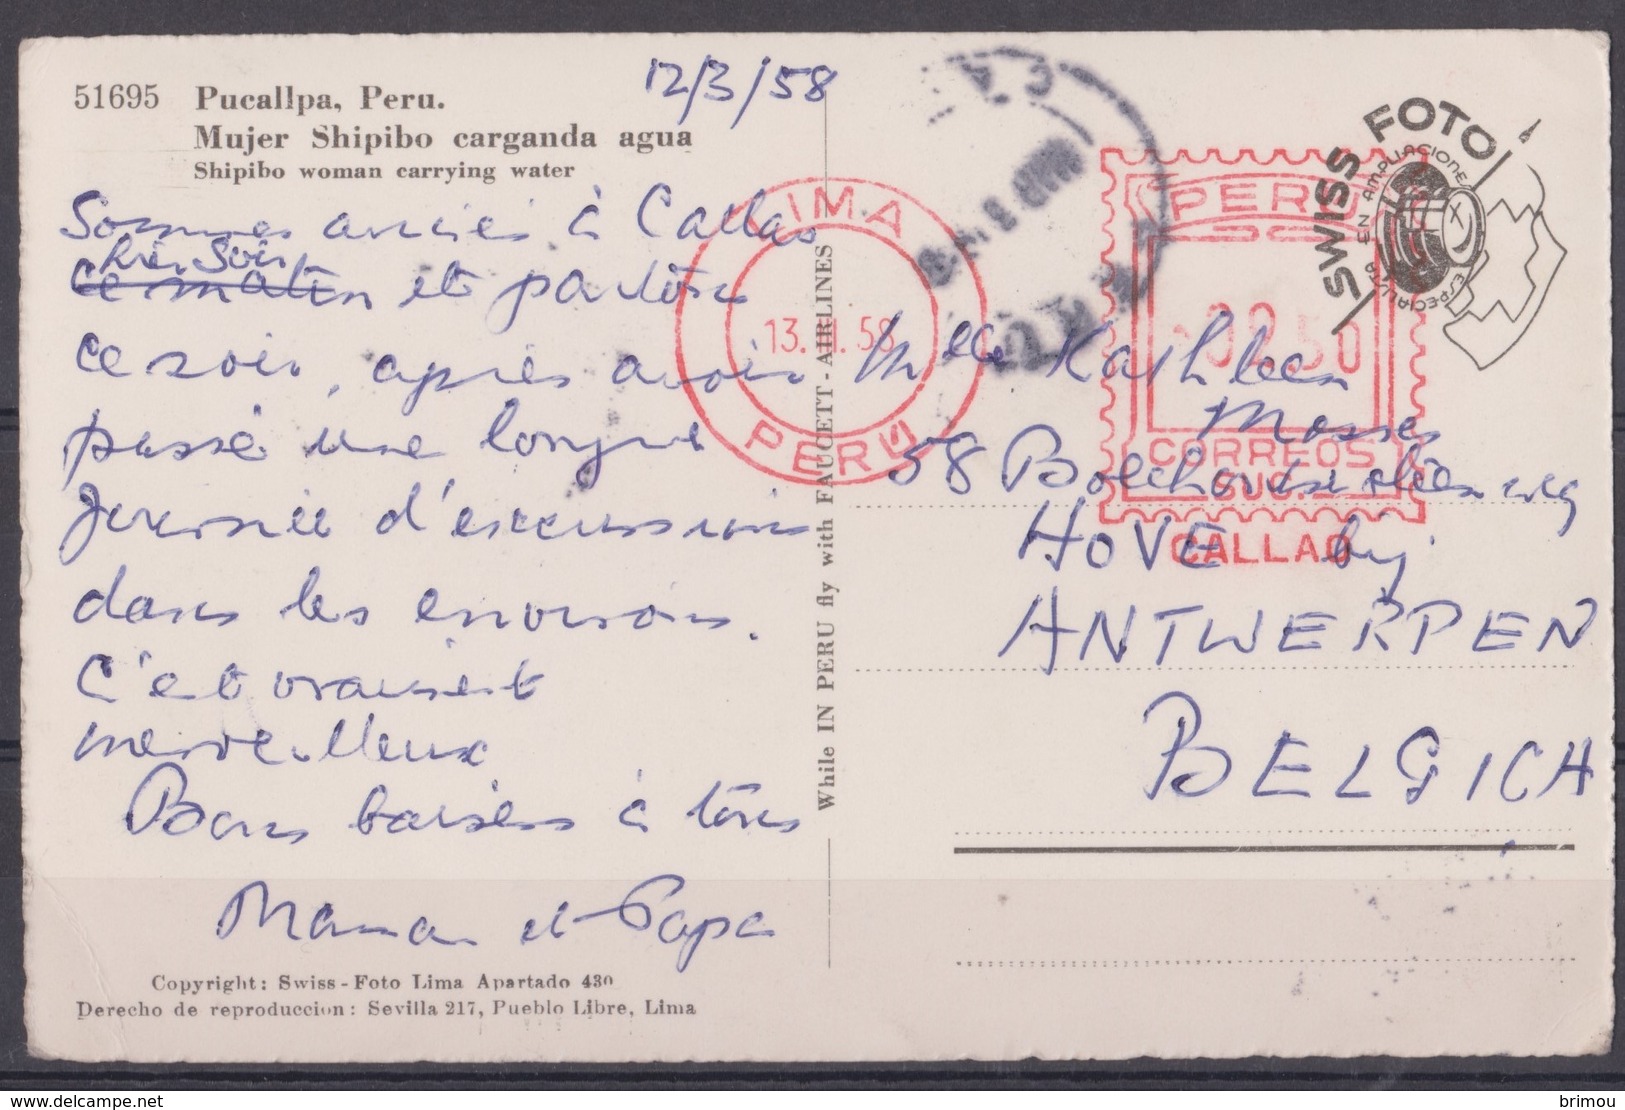 51695 Pucallpa, Peru.
Mujer Shipibo carganda agua
Shipibo woman carrying water
12/3/58
Sommes arrivés à Callao
hier soir
ce matin et partons
ce soir, après avoir
passé une longue
journée d'excursions
dans les environs.
C'est vraiment
merveilleux
Bons baisers à tous
Maman et Papa
Copyright: Swiss-Foto Lima Apartado 430
Derecho de reproduccion: Sevilla 217, Pueblo Libre, Lima
While IN PERU fly with FAUCETT - AIRLINES
LIMA
13. 58
PERU
CA
MAR 13
PERU
CORREOS
CALLAO
SWISS FOTO
EN AMPLIACIONE
ESPECIALISTA
Melle Kathleen
Mosses
58
HOVE bij
ANTWERPEN
BELGICA
delcampe.net
brimou